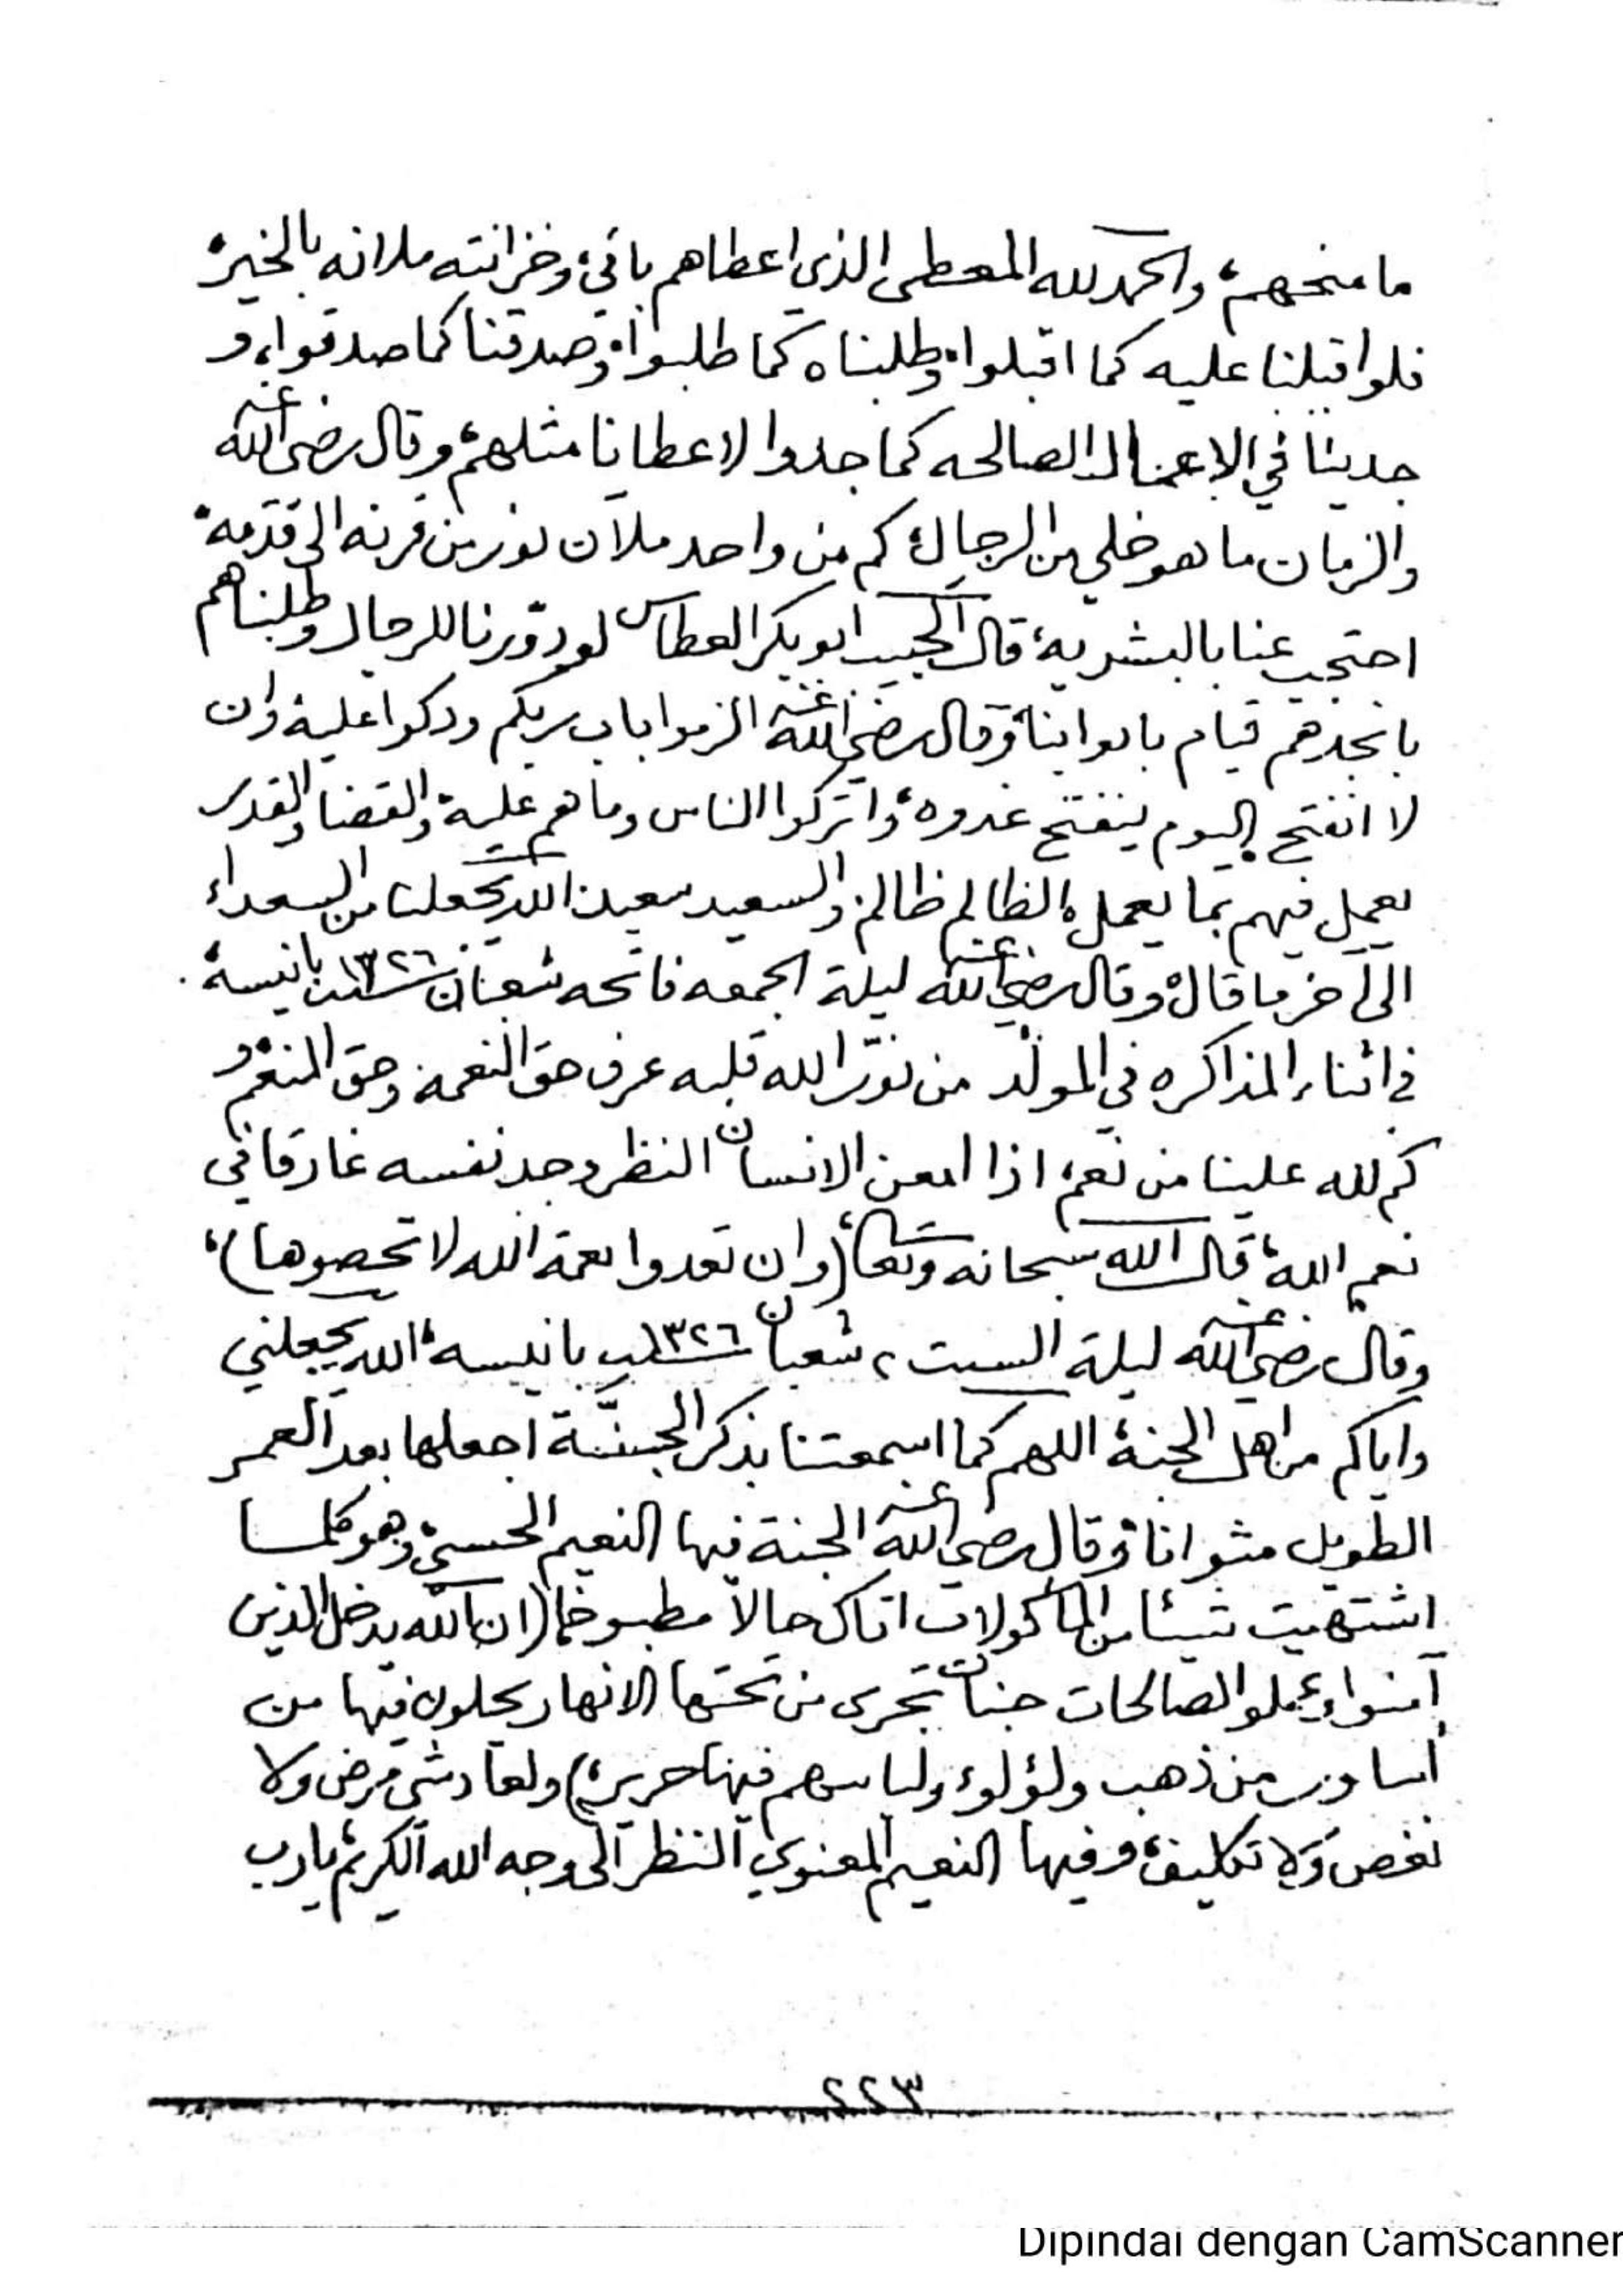 ما منحهم، والحمد لله المعطي الذي اعطاهم باقي، وخزانته ملانه بالخير،
فلو اقبلنا عليه كما اقبلوا، وطلبناه كما طلبوا، وصدقنا كما صدقوا، و
جدينا في الاعمال الصالحه كما جدوا لاعطانا مثلهم، وقال رضي الله عنه
والزمان ما هو خلي من الرجال، كم من واحد ملآن نور من قرنه الى قدمه،
احتجب عنا بالبشريه، قال الحبيب ابو بكر العطاس لو دوّرنا للرجال وطلبناهم
بانجدهم قيام بابوابنا، وقال رضي الله عنه الزموا باب ربكم ودكوا عليه، وان
لا انفتح اليوم ينفتح غدوه، واتركوا الناس وما هم عليه، والقضا والقدر
يعمل فيهم بما يعمل، الظالم ظالم، والسعيد سعيد، الله يجعلنا من السعداء
الى آخر ما قال، وقال رضي الله عنه ليلة الجمعه فاتحه شعبان سنة ١٣٢٦ بانيسه،
في اثناء المذاكره في المولد من نوّر الله قلبه عرف حق النعمة، وحق المنعم، و
كم لله علينا من نعم، اذا امعن الانسان النظر وجد نفسه غارقا في
نعم الله، قال الله سبحانه وتعالى، (وان تعدوا نعمة الله لا تحصوها)،
وقال رضي الله عنه ليلة السبت ٢ شعبان سنة ١٣٢٦ بانيسه، الله يجعلني
واياكم من اهل الجنة، اللهم كما اسمعتنا بذكر الجنّة اجعلها بعد العمر
الطويل مثوانا، وقال رضي الله عنه الجنة فيها النعيم الحسي، وهو كلما
اشتهيت شيئا من المأكولات اتاك حالاً مطبوخا (ان الله يدخل الذين
آمنوا وعملوا الصالحات جنات تجرى من تحتها الانهار يحلون فيها من
أساور من ذهب ولؤلوء ولباسهم فيها حرير،) ولعاد شي مرض ولا
نغص ولا تكليف، وفيها النعيم المعنوي النظر الى وجه الله الكريم، يارب
٢٢٣
Dipindai dengan CamScanner